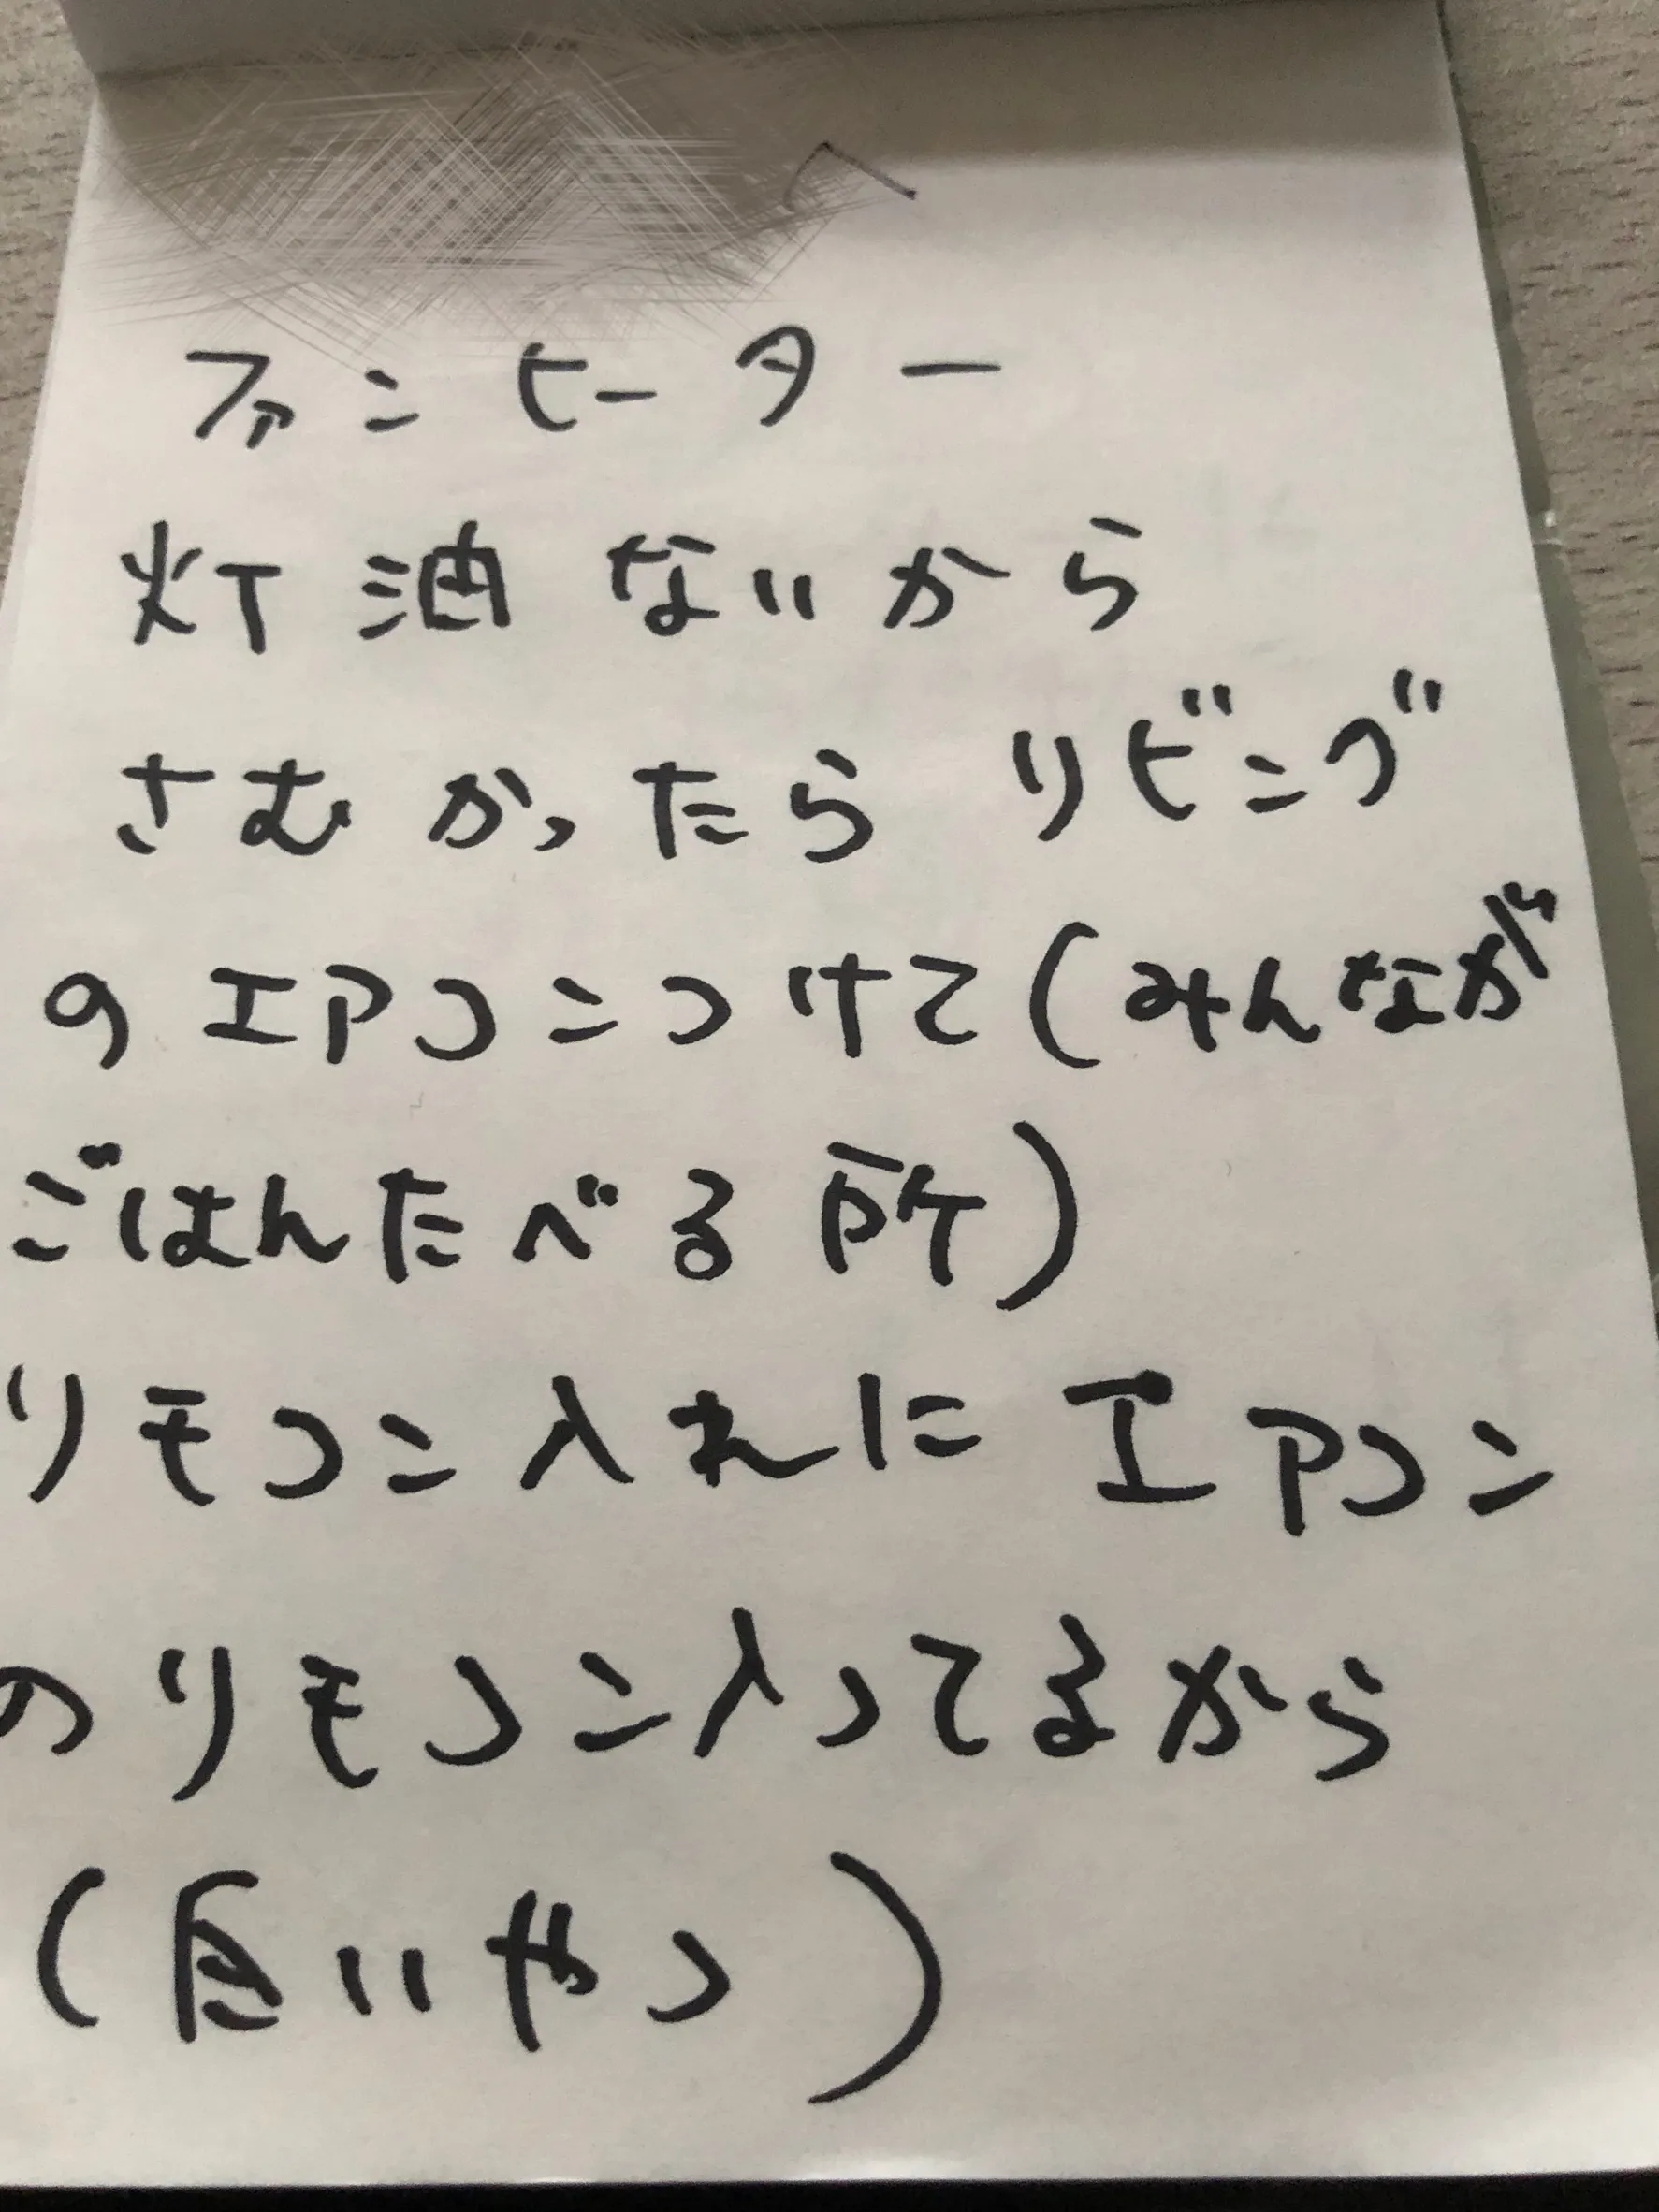 へ
ファンヒーター
灯油ないから
さむかったらリビング
のエアコンつけて(みんなが
ごはんたべる所)
リモコン入れにエアコン
のリモコン入ってるから
(長いやつ)